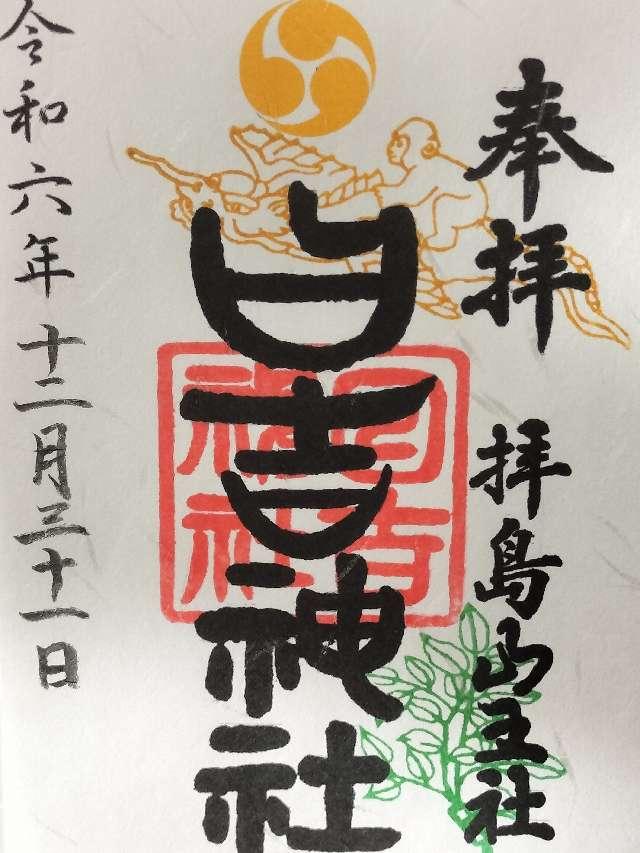 奉拝
拝島山王社
日吉神社
日吉
神社
令和六年十二月三十一日